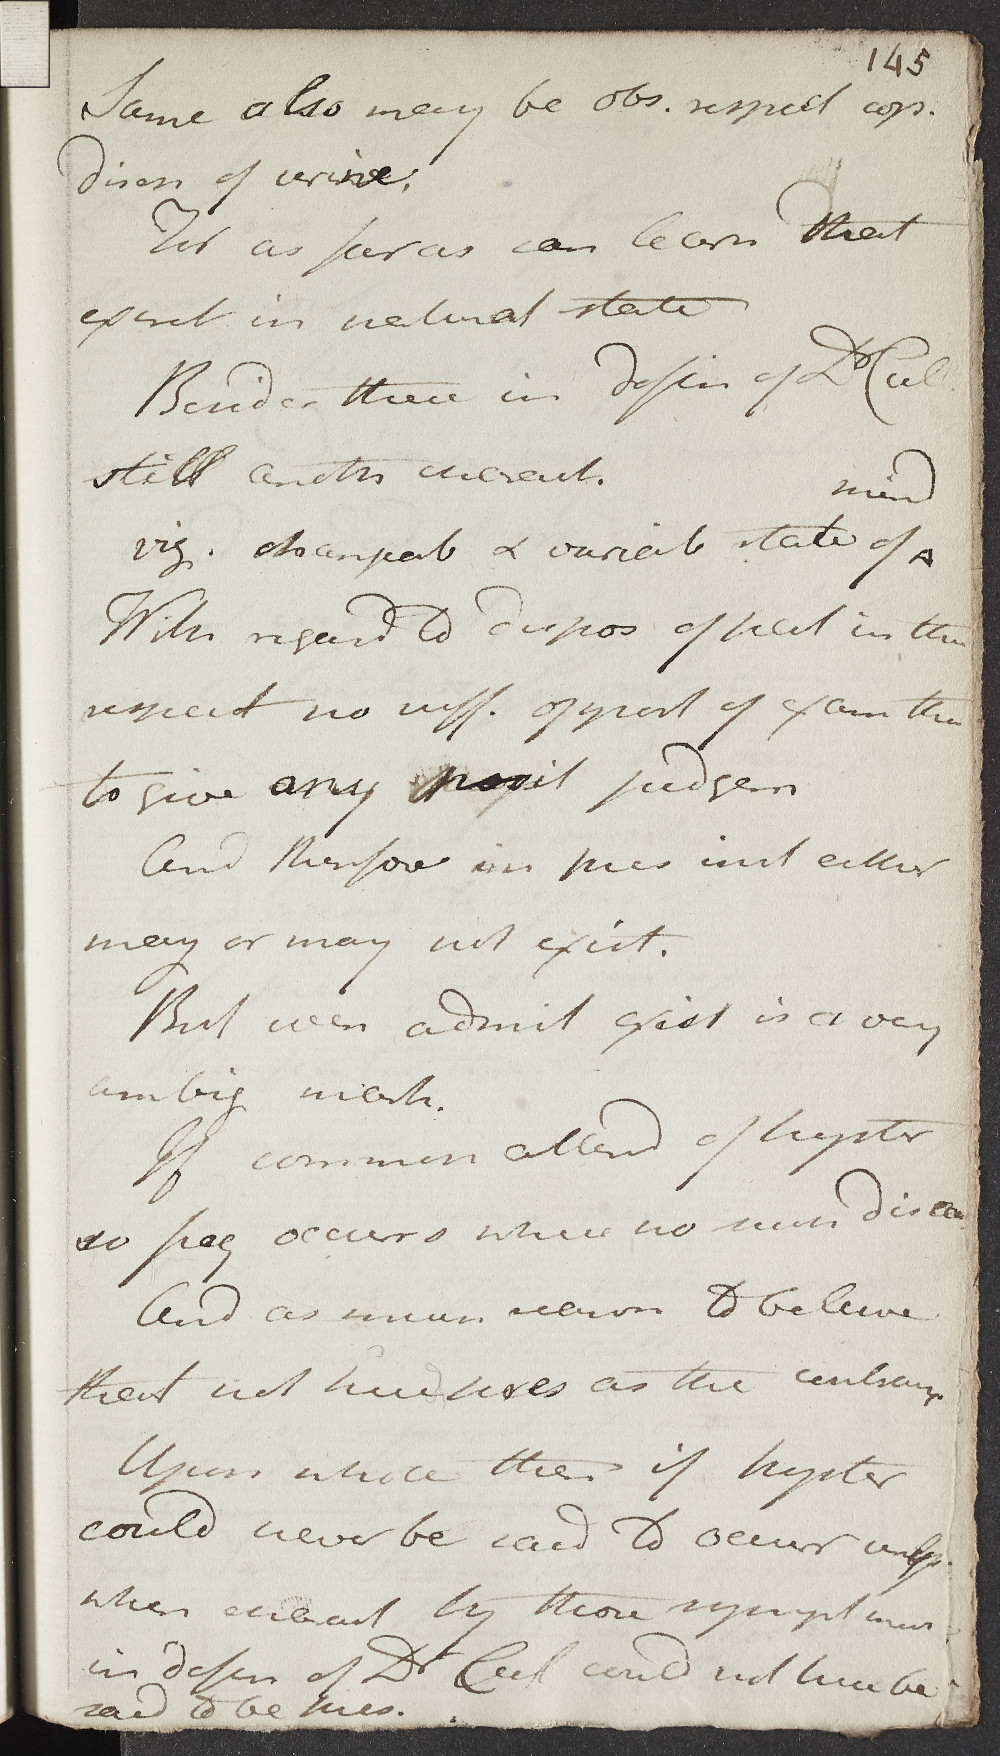 145
Same also may be obs. respect cop.
disch of urine.
Yet as far as can learn that
excret in natural state
Besides these in defin of Dr Cul.
still anoth charact.
mind
viz. changeab & variab state of ^
With regard to dispos of pat in this
respect no suff. opport of exam this
to give any posit judgem
And therefore in pres inst either
may or may not exist.
But even admit exist is a very
ambig mark.
If common attend of hyster
so freq occurs where no such disease
And as much reason to believe
that not here pres as the contrary.
Upon whole then if hyster
could never be said to occur unless
when charact by those sympt
in defin of Dr Cul could not here be
said to be pres.